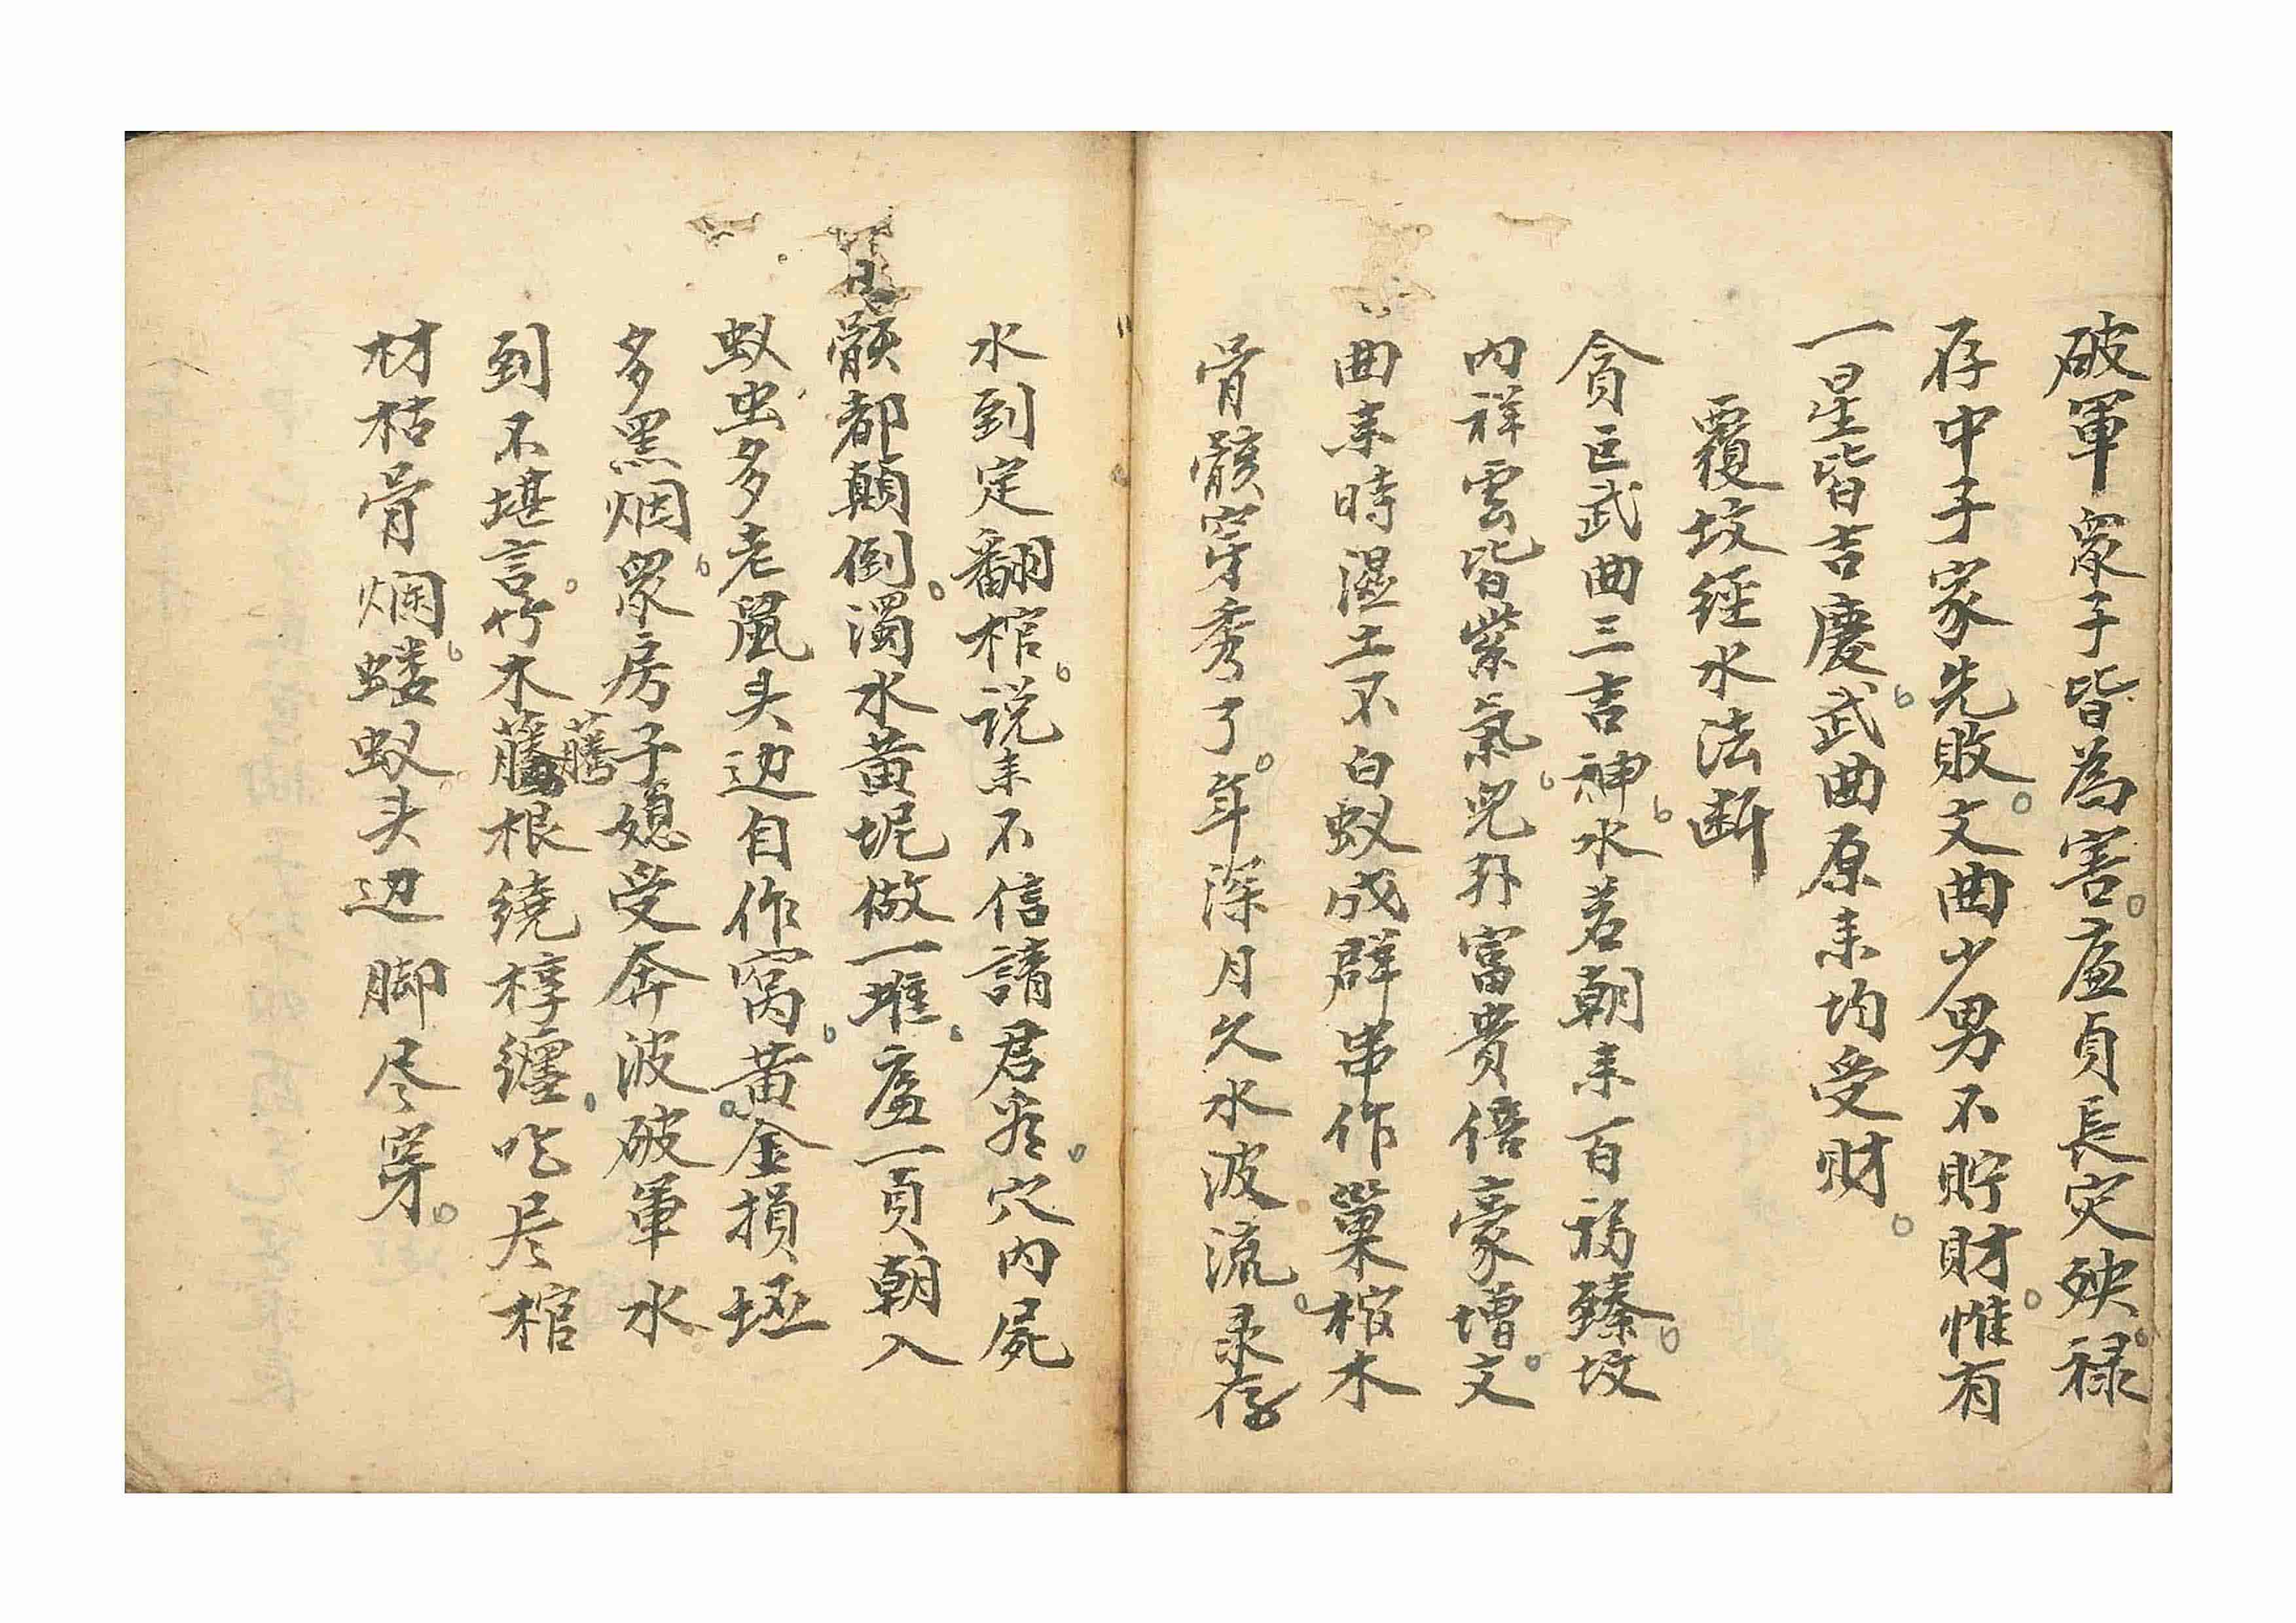 破軍眾子皆為害。廉貞長灾殃。禄
存中子家先敗。文曲少男不貯財。惟有
一星皆吉慶。武曲原来均受财。
覆坟經水法断
貪巨武曲三吉神。水若朝来百福臻。坟
内祥雲皆紫氣。兒孙富貴倍豪增。文
曲来時濕土不白蚁成群串作菓棺木
骨骸穿秀了。年深月久水波流。录存
水到定翻棺。说来不信請君岩。穴内屍
骸都顛倒。濁水黄坭做一堆。廉貞朝入
蚁虫多老鼠头边自作窝。黄金損坵
多黑烟。眾房子媳受奔波。破軍水
到不堪言。竹木藤根繞椁纏。吃尽棺
材枯骨烂。蝼蚁头边脚尽穿。